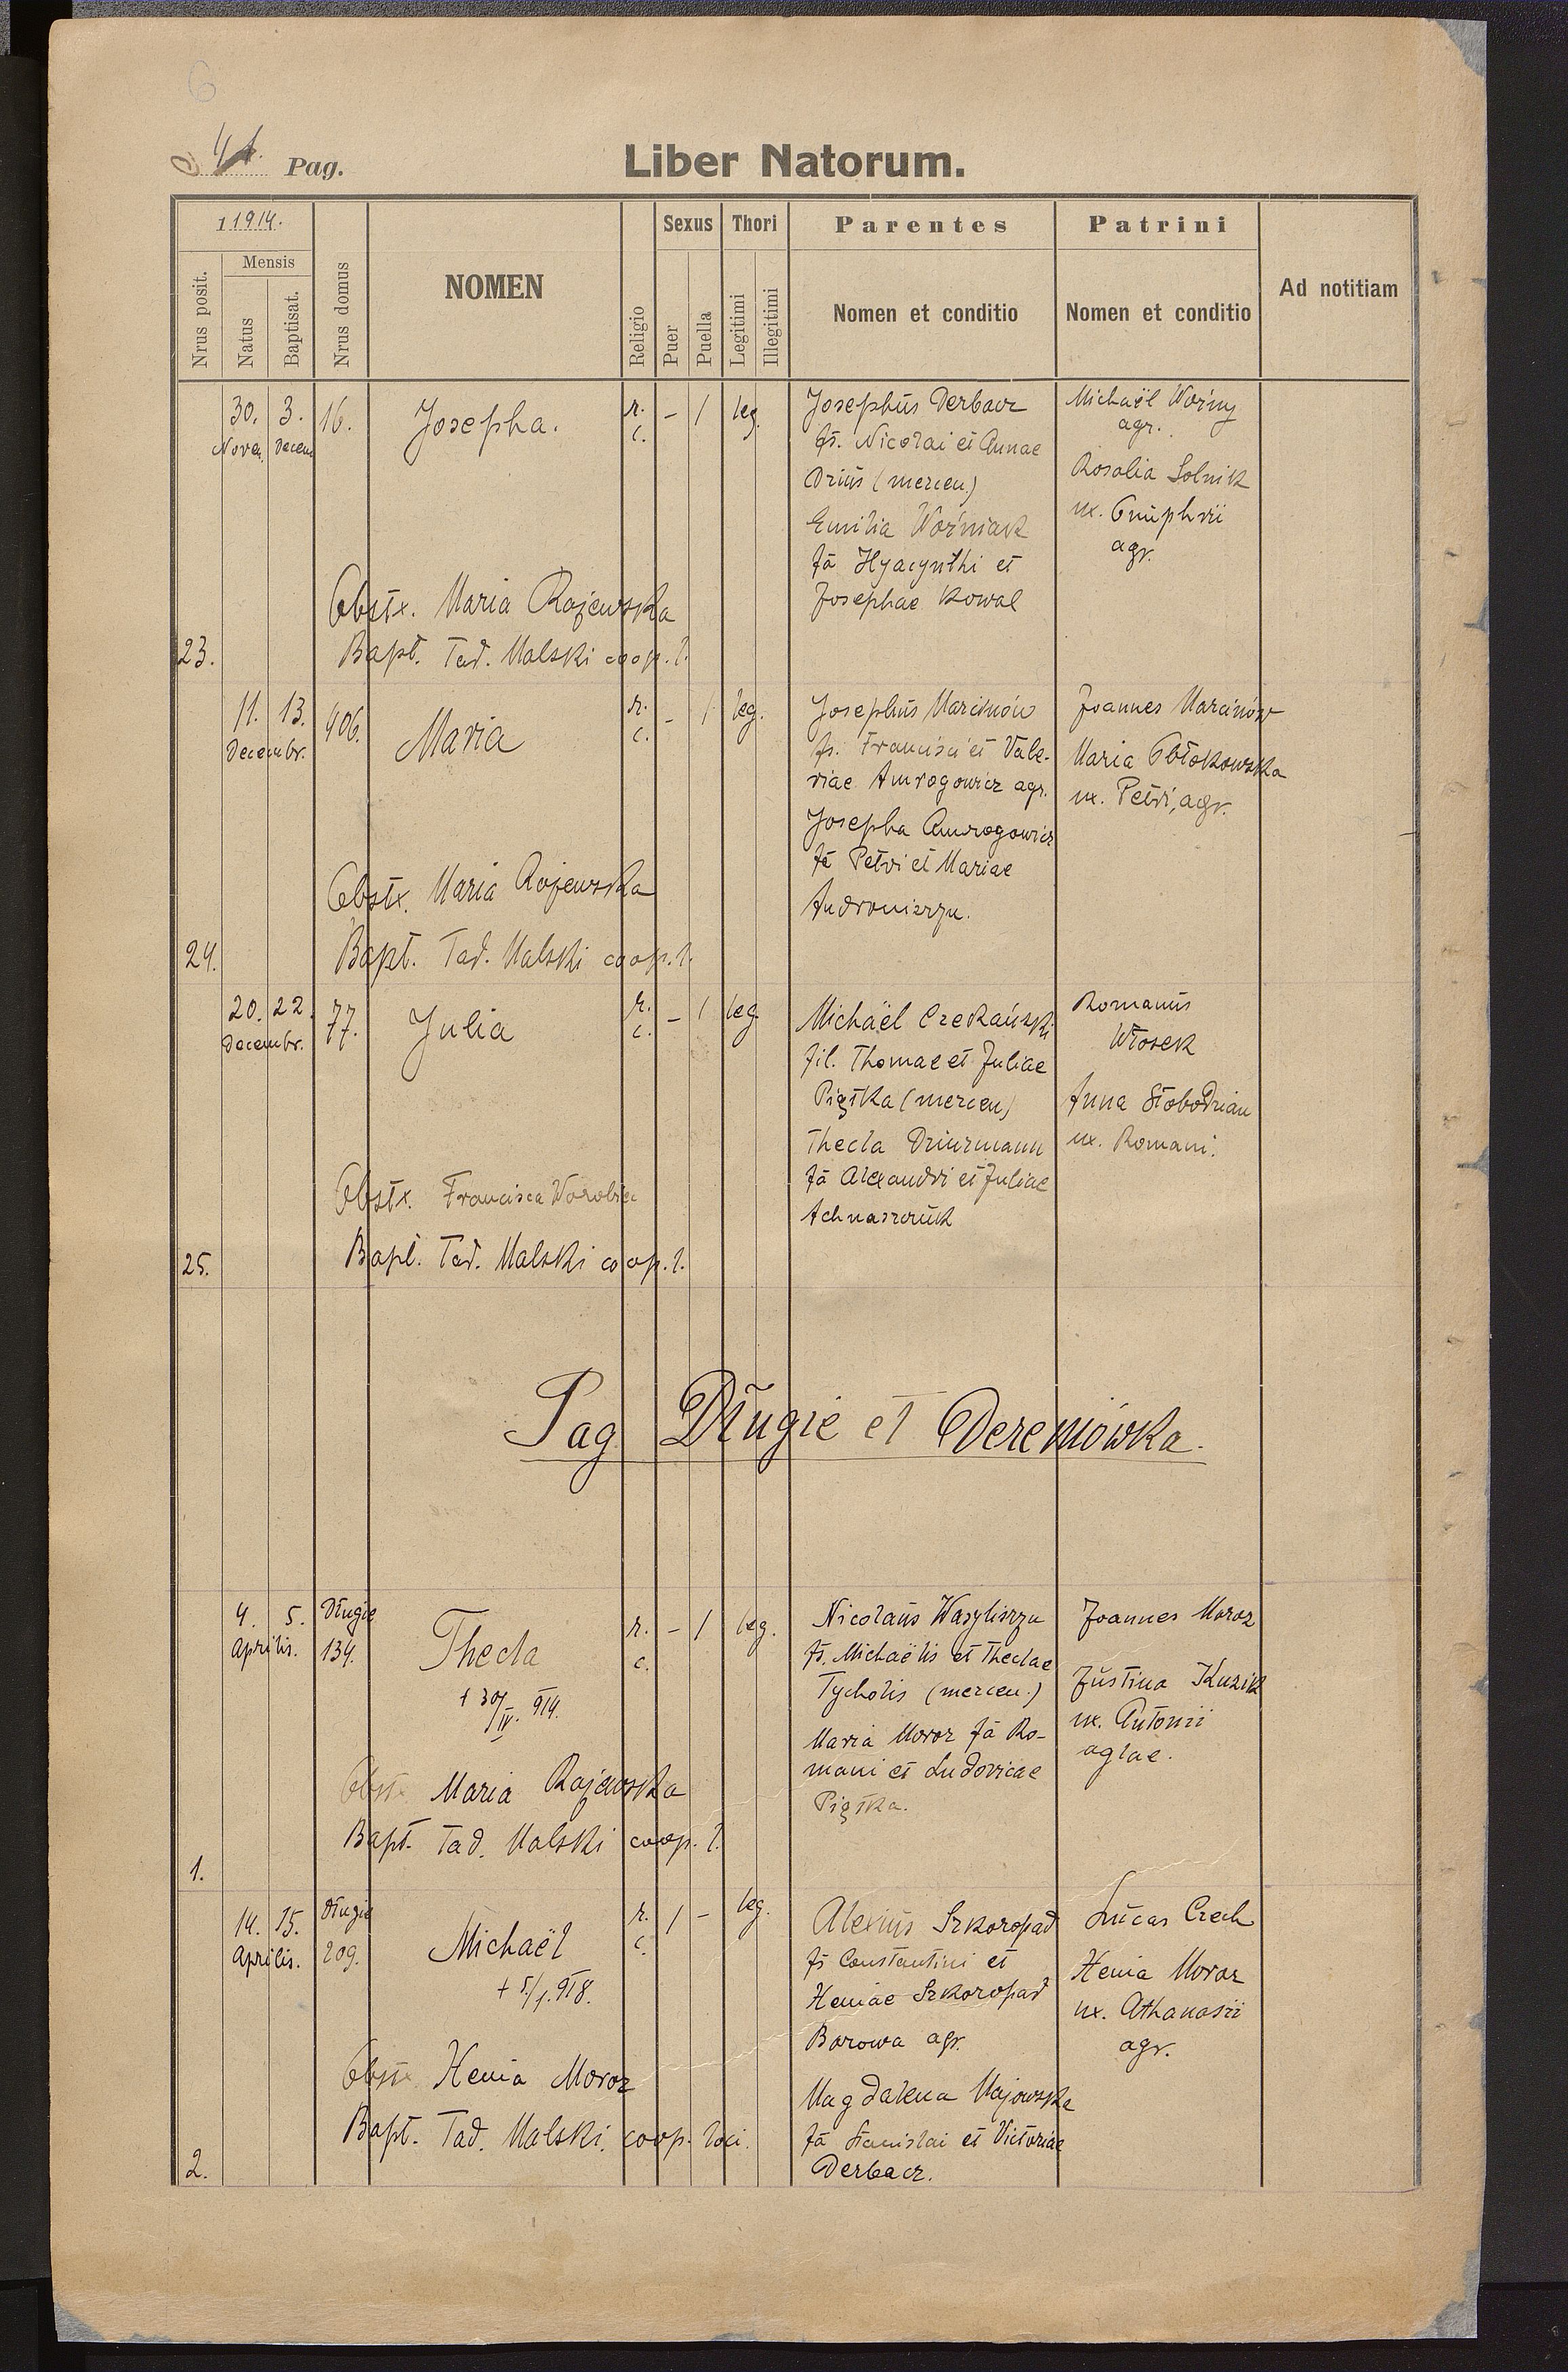 6
41. Pag.
Liber Natorum.
1914.
Nrus posit.
Mensis
Natus
Baptisat.
Nrus domus
NOMEN
Religio
Sexus
Puer
Puella
Thori
Legitimi
Illegitimi
Parentes
Nomen et conditio
Patrini
Nomen et conditio
Ad notitiam
23.
30. 3.
Novem. Decem
16.
Josepha.
r.
c.
- 1
leg.
Obstx. Maria Rajewska
Bapt. Tad. Malski coop. l.
Josephus Derbacz
fs. Nicolai et Annae
Dzius (mercen.)
Emilia Woźniak
fa Hyacynthi et
Josephae Kowal
Michaël Woźny
agr.
Rosalia Solnik
ux. Onuphrii
agr.
24.
11. 13.
Decembr.
406.
Maria
r.
c.
- 1
leg.
Obstx. Maria Rajewska
Bapt. Tad. Malski coop. l.
Josephus Marcinów
fs. Francisci et Vale-
riae Amrogowicz agr.
Josepha Amrogowicz
fa Petri et Mariae
Androniszyn.
Joannes Marcinów
Maria Obłokowska
ux. Petri, agr.
25.
20. 22.
Decembr.
77.
Julia
r.
c.
- 1
leg
Obstx. Francisca Worobiec
Bapt. Tad. Malski coop. l.
Michaël Czekański
fil. Thomae et Juliae
Piętka (mercen)
Thecla Dziurmann
fa Alexandri et Juliae
Achnaszczuk
Romanus
Włosek
Anna Słobodzian
ux. Romani.
Pag Długie et Deremówka.
1.
4. 5.
Aprilis.
Długie
134.
Thecla
+ 30/IV. 914.
r.
c.
- 1
leg.
Obstx Maria Rajewska
Bapt. Tad. Malski coop. l.
Nicolaus Wasyliszyn
fs. Michaëlis et Theclae
Tycholis (mercen.)
Maria Moroz fa Ro-
mani et Ludovicae
Piętka.
Joannes Moroz
Justina Kuzik
ux. Antonii
aglae.
2.
14. 15.
Aprilis.
Długie
209.
Michaël
+ 5/1. 918.
r.
c.
1 -
leg.
Obstx Henia Moroz
Bapt. Tad. Malski. coop. loci.
Alexius Szkoropad
fs Constantini et
Heniae Szkoropad
Borowa agr.
Magdalena Majowska
fa Stanislai et Victoriae
Derbacz.
Lucas Czech
Henia Moroz
ux. Athanasii
agr.